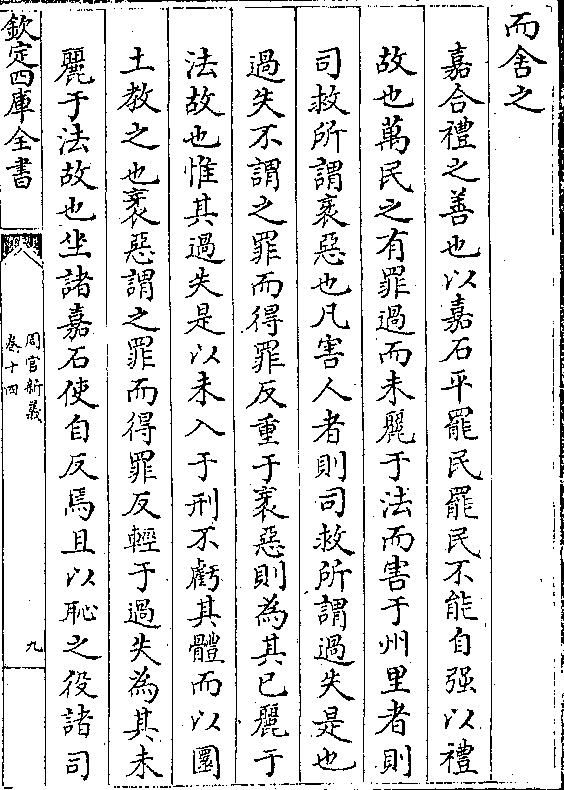 而舍之
嘉合禮之善也以嘉石平罷民罷民不能自强以禮
故也萬民之有罪過而未麗于法而害于州里者則
司救所謂衺惡也凡害人者則司救所謂過失是也
過失不謂之罪而得罪反重于衺惡則為其已麗于
法故也惟其過失是以未入于刑不虧其體而以圜
土教之也衺惡謂之罪而得罪反輕于過失為其未
麗于法故也坐諸嘉石使自反焉且以恥之役諸司
欽定四庫全書
周官新義
卷十四
九